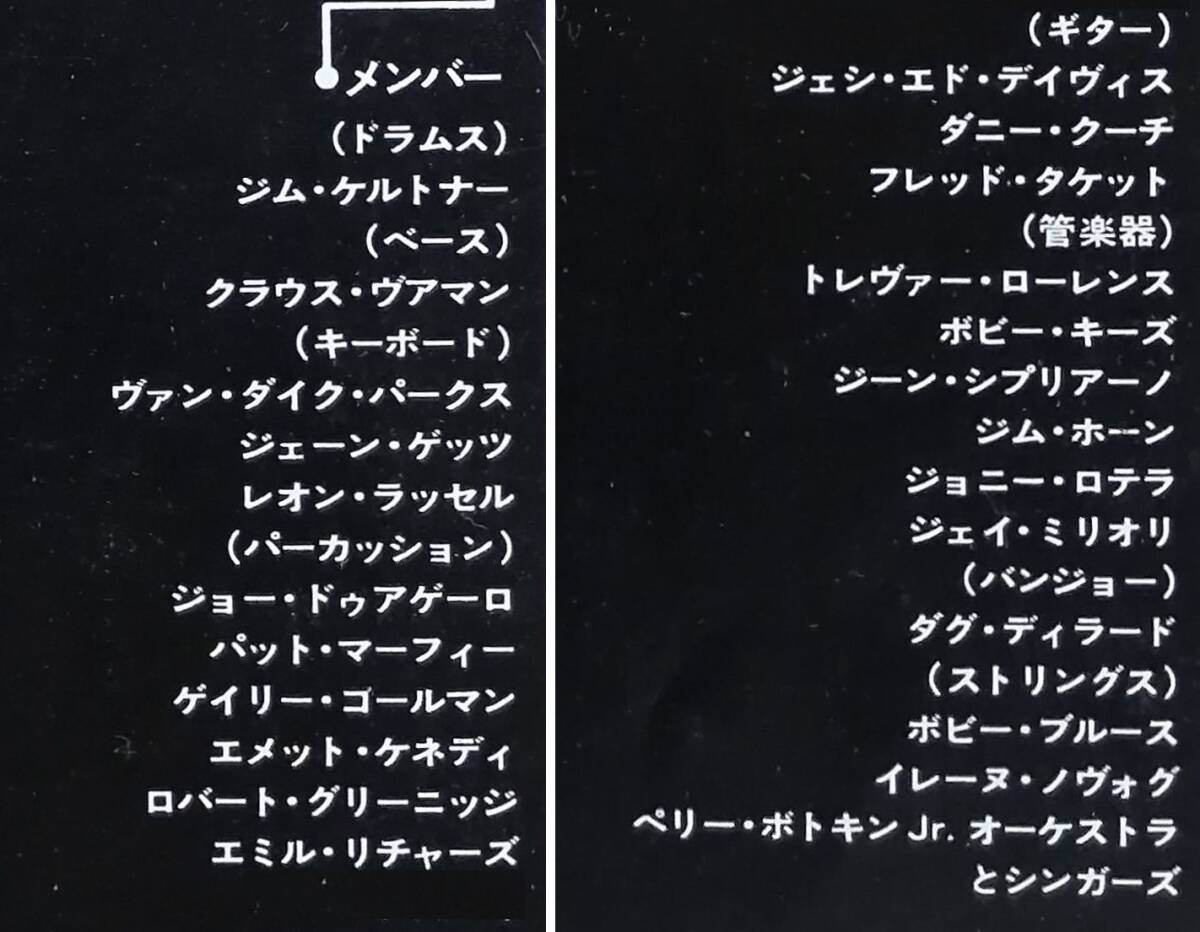 メンバー
(ドラムス)
ジム・ケルトナー
(ベース)
クラウス・ヴアマン
(キーボード)
ヴァン・ダイク・パークス
ジェーン・ゲッツ
レオン・ラッセル
(パーカッション)
ジョー・ドゥアゲーロ
パット・マーフィー
ゲイリー・ゴールマン
エメット・ケネディ
ロバート・グリーニッジ
エミル・リチャーズ
(ギター)
ジェシ・エド・デイヴィス
ダニー・クーチ
フレッド・タケット
(管楽器)
トレヴァー・ローレンス
ボビー・キーズ
ジーン・シプリアーノ
ジム・ホーン
ジョニー・ロテラ
ジェイ・ミリオリ
(バンジョー)
ダグ・ディラード
(ストリングス)
ボビー・ブルース
イレーヌ・ノヴォグ
ペリー・ボトキンJr. オーケストラ
とシンガーズ